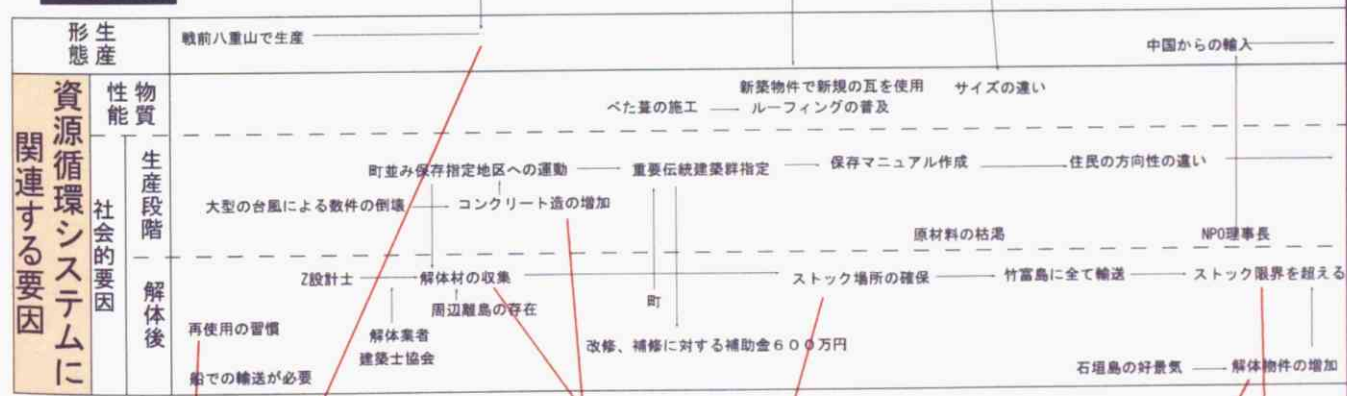 生産
形態
戦前八重山で生産
中国からの輸入
資源循環システムに
関連する要因
物質
性能
新築物件で新規の瓦を使用
サイズの違い
べた葺の施工
ルーフィングの普及
社会的要因
生産段階
町並み保存指定地区への運動
重要伝統建築群指定
保存マニュアル作成
住民の方向性の違い
大型の台風による数件の倒壊
コンクリート造の増加
原材料の枯渇
NPO理事長
解体後
Z設計士
解体材の収集
ストック場所の確保
竹富島に全て輸送
ストック限界を超える
周辺離島の存在
町
再使用の習慣
解体業者
建築士協会
改修、補修に対する補助金600万円
石垣島の好景気
解体物件の増加
船での輸送が必要